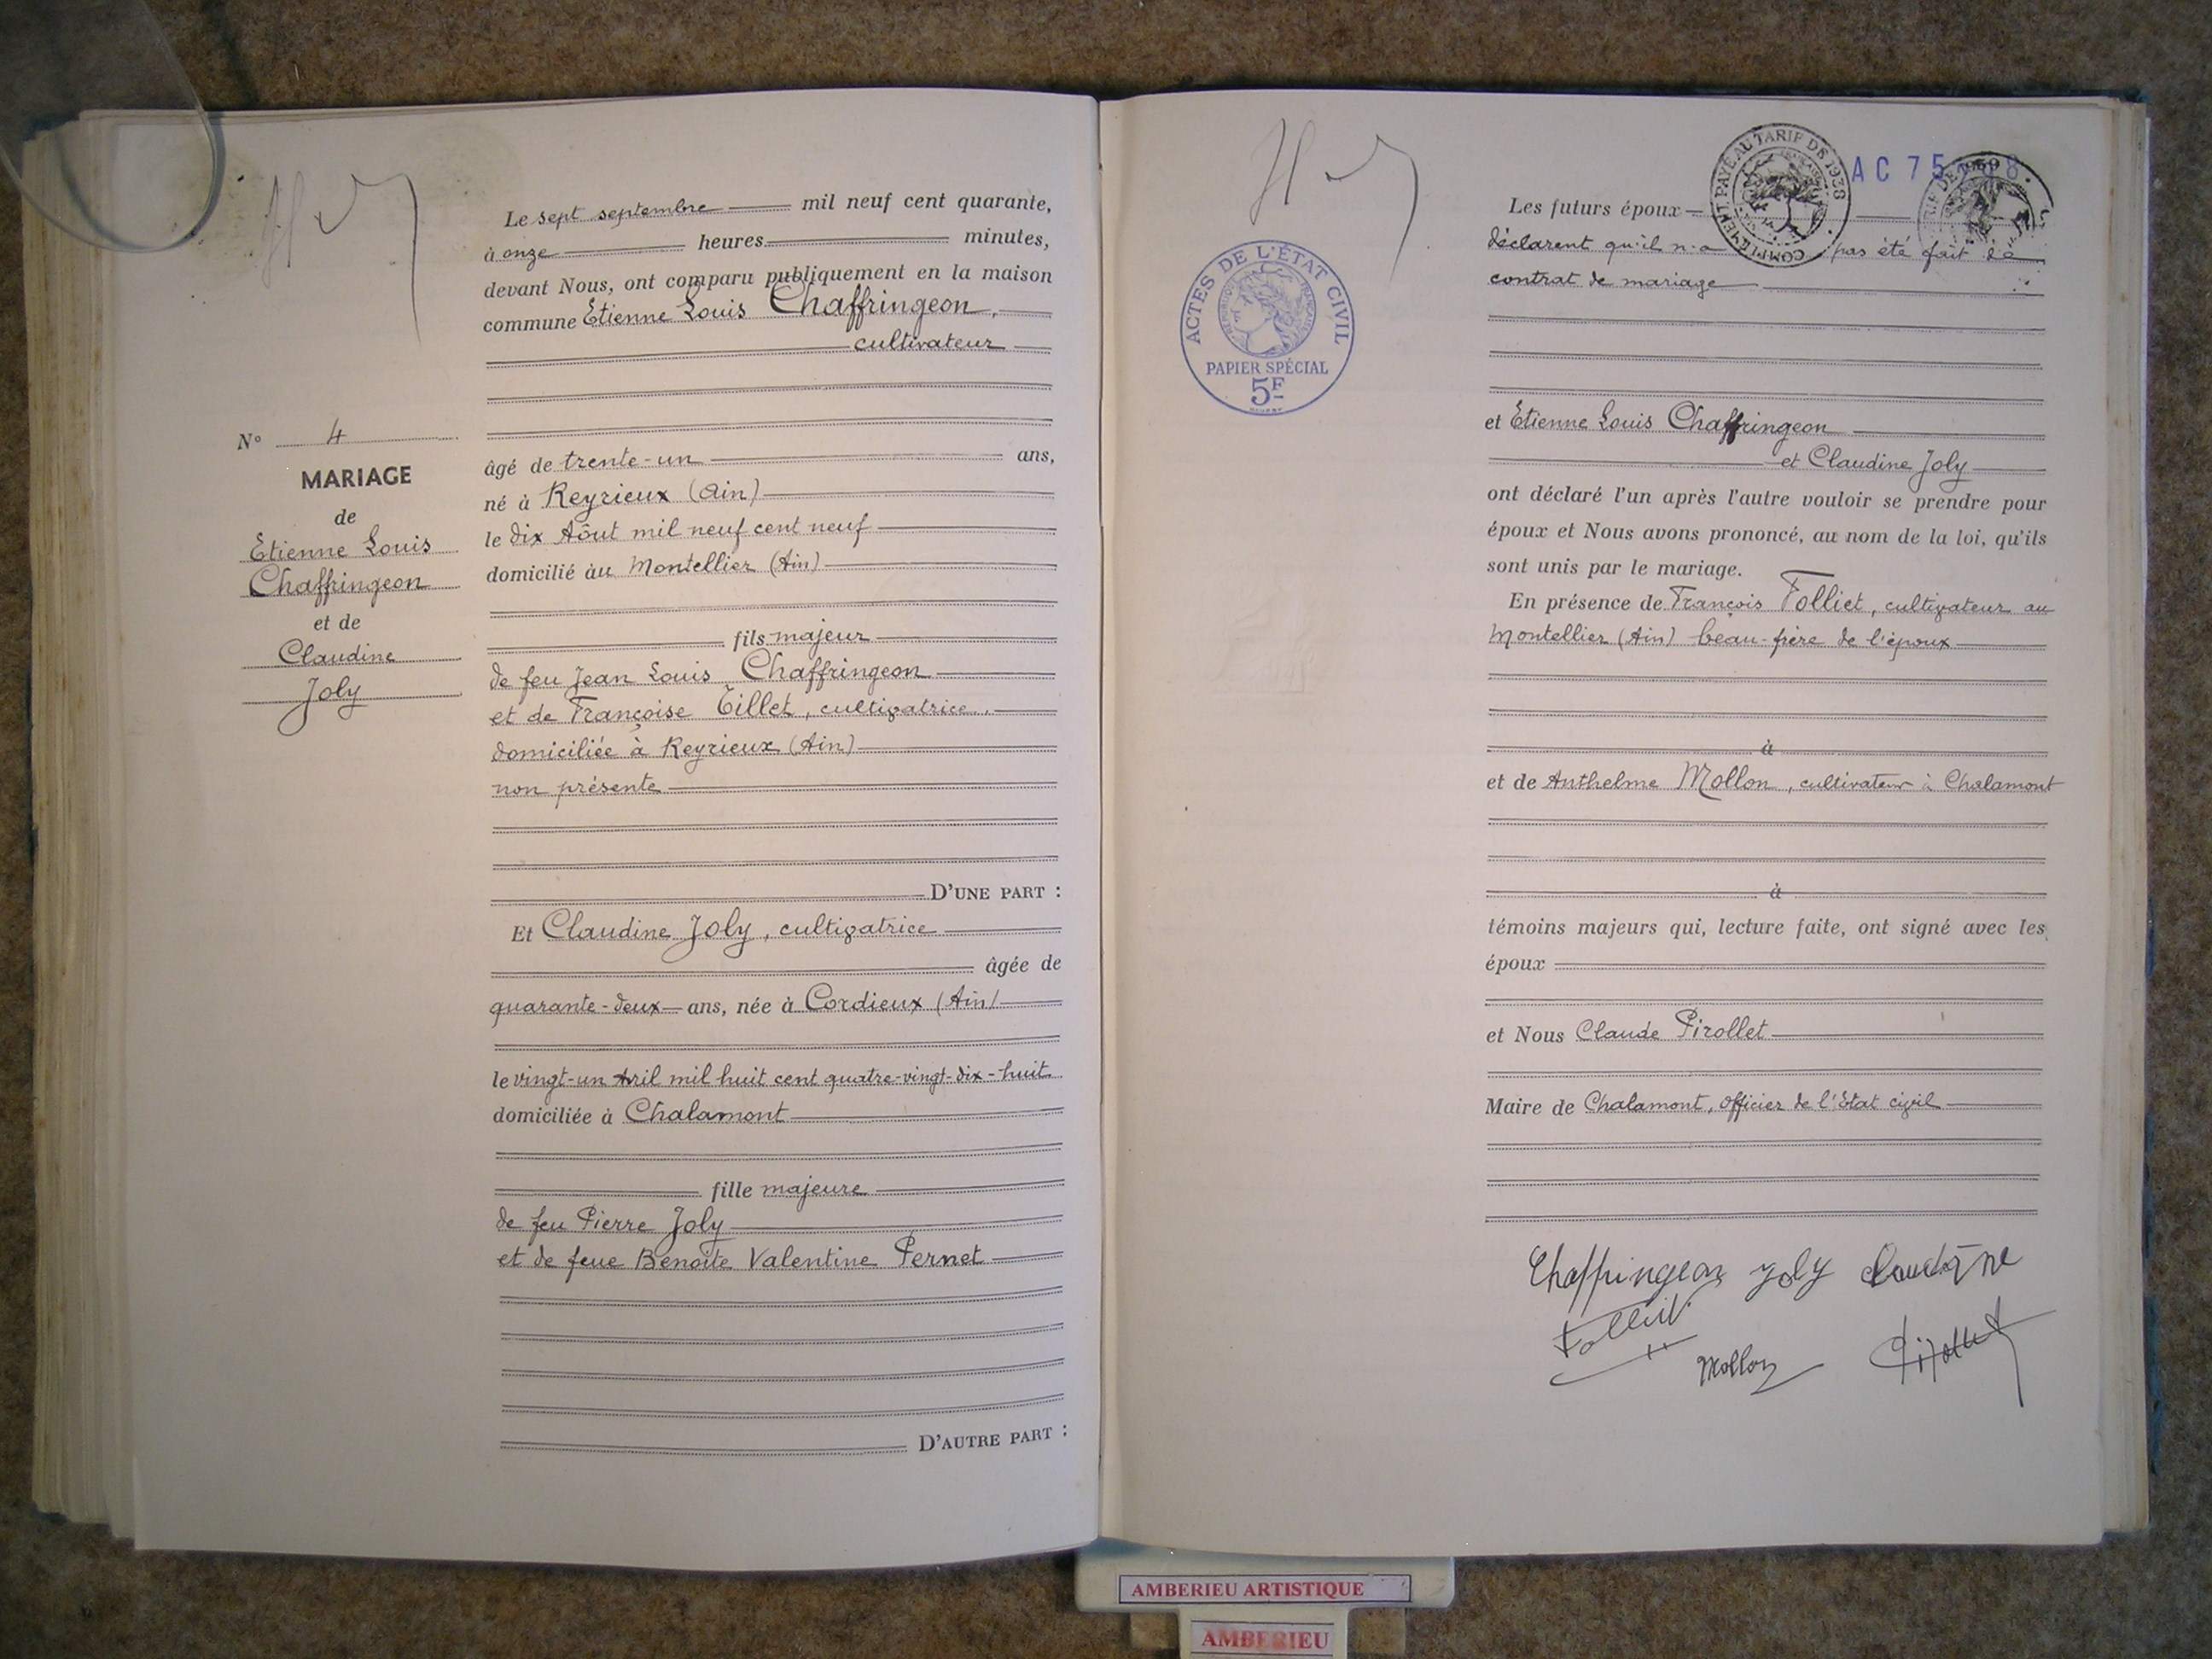 Le sept septembre mil neuf cent quarante,
à onze heures minutes,
devant Nous, ont comparu publiquement en la maison
commune Etienne Louis Chaffringeon,
cultivateur
N° 4
MARIAGE
de
Etienne Louis
Chaffringeon
et de
Claudine
Joly
âgé de trente-un ans,
né à Reyrieux (Ain)
le dix Aôut mil neuf cent neuf
domicilié àu Montellier (Ain)
fils majeur
de feu Jean Louis Chaffringeon
et de Françoise Tillet, cultivatrice,
domiciliée à Reyrieux (Ain)
non présente
D'UNE PART :
Et Claudine Joly, cultivatrice
âgée de
quarante-deux ans, née à Cordieux (Ain)
le vingt-un Avril mil huit cent quatre-vingt-dix-huit
domiciliée à Chalamont
fille majeure
de feu Pierre Joly
et de feue Benoîte Valentine Pernet
D'AUTRE PART :
COMPLEMENT PAYE AU TARIF DE 1938
AC 75
Les futurs époux
déclarent qu'il n'a pas été fait de
contrat de mariage
ACTES DE L'ÉTAT CIVIL
PAPIER SPÉCIAL
5F
et Etienne Louis Chaffringeon
et Claudine Joly
ont déclaré l'un après l'autre vouloir se prendre pour
époux et Nous avons prononcé, au nom de la loi, qu'ils
sont unis par le mariage.
En présence de François Folliet, cultivateur au
Montellier (Ain) beau-frère de l'époux
à
et de Anthelme Mollon, cultivateur à Chalamont
à
témoins majeurs qui, lecture faite, ont signé avec les
époux
et Nous Claude Pirollet
Maire de Chalamont, officier de l'Etat civil
Chaffringeon Joly Claudine
Folliet
Mollon Pirollet
AMBERIEU ARTISTIQUE
AMBERIEU